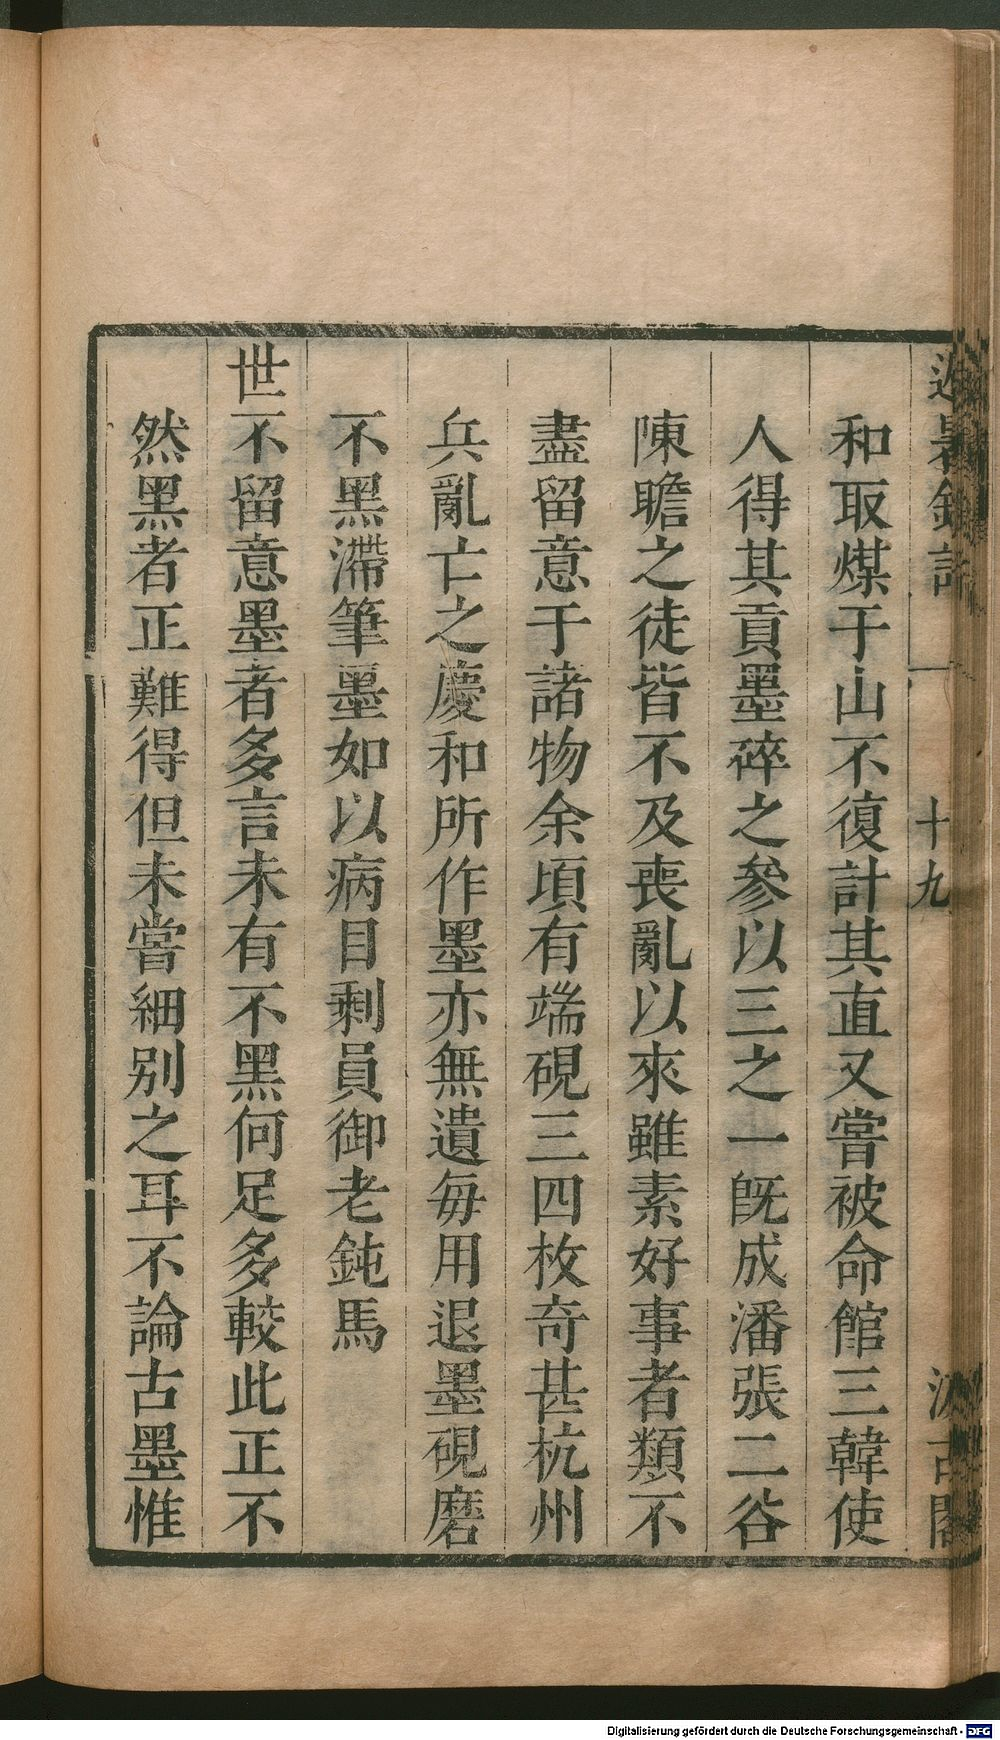 避暑錄話
十九
汲古閣
和取煤于山不復計其直又嘗被命館三韓使
人得其貢墨碎之參以三之一旣成潘張二谷
陳瞻之徒皆不及喪亂以來雖素好事者類不
盡留意于諸物余頃有端硯三四枚奇甚杭州
兵亂亡之慶和所作墨亦無遺每用退墨硯磨
不黑滯筆墨如以病目剩員御老鈍馬
世不留意墨者多言未有不黑何足多較此正不
然黑者正難得但未嘗細别之耳不論古墨惟
Digitalisierung gefördert durch die Deutsche Forschungsgemeinschaft - DFG